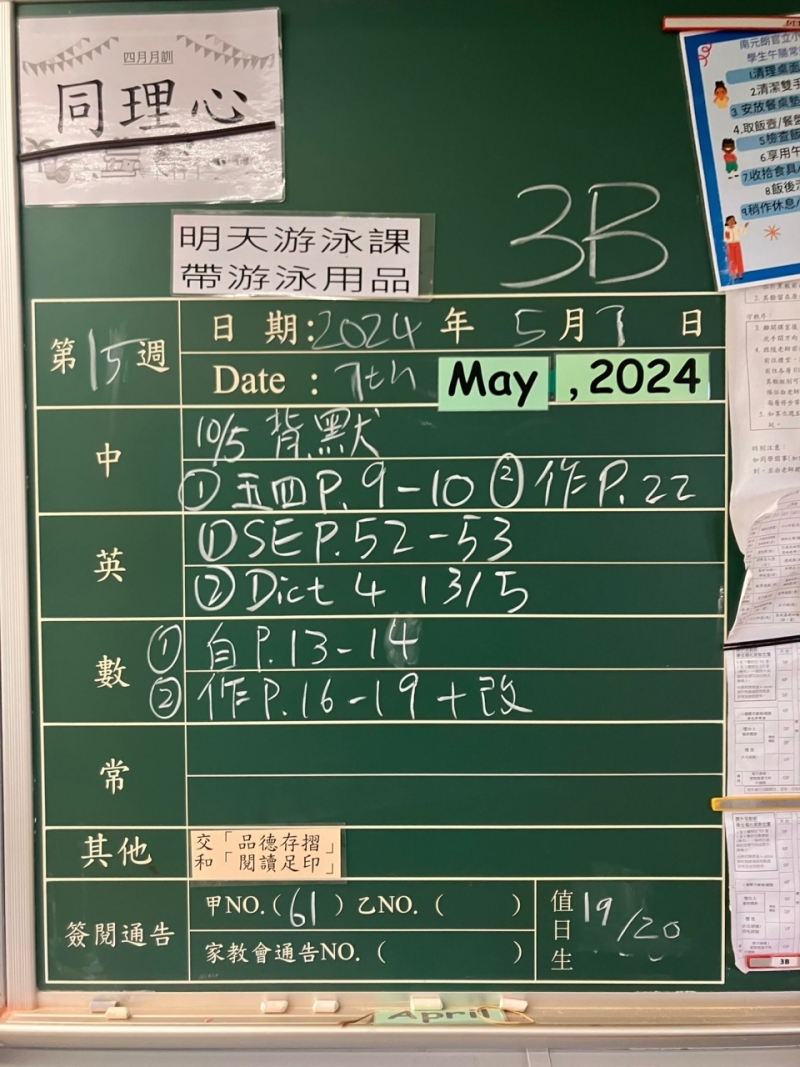 四月月訓
同理心
南元朗官立小
學生午膳常
1.清理桌面
2.清潔雙手
3.安放餐桌墊
4.取飯壺/餐盤
5.檢查飯
6.享用午
7.收拾食具
8.飯後
9.稍作休息/
3B
明天游泳課
帶游泳用品
第15週
日期:2024年5月7日
Date : 7th May , 2024
中
10/5 背默
① 五四P.9-10 ② 作P.22
英
① SE P.52-53
② Dict 4 13/5
數
① 自P.13-14
② 作P.16-19 + 改
常
其他
交「品德存摺」
和「閱讀足印」
簽閱通告
甲NO.(61) 乙NO.( )
家教會通告NO.( )
值日生 19/20
3B
April